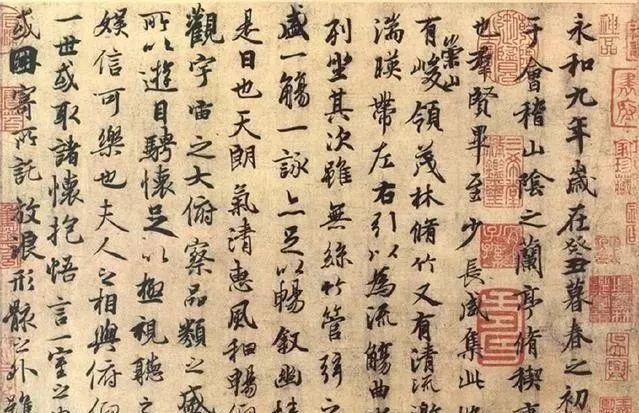 永和九年歲在癸丑暮春之初
于會稽山陰之蘭亭脩稧事
也羣賢畢至少長咸集此地
有崇山峻領茂林脩竹又有清流激
湍暎帶左右引以為流觴曲
列坐其次雖無絲竹管弦之
盛一觴一詠亦足以暢敘幽情
是日也天朗氣清惠風和暢
觀宇宙之大俯察品類之盛
所以遊目騁懷足以極視聽之
娛信可樂也夫人之相與俯仰
一世或取諸懷抱悟言一室之內
或因寄所託放浪形骸之外雖